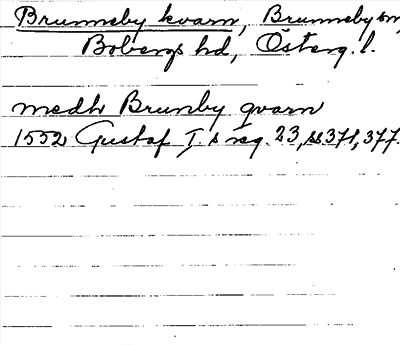 Brunneby kvarn, Brunneby sn,
Bobergs hd, Österg. l.
medh Brunby qvarn
1552 Gustaf I.s reg. 23, ss 371, 377.